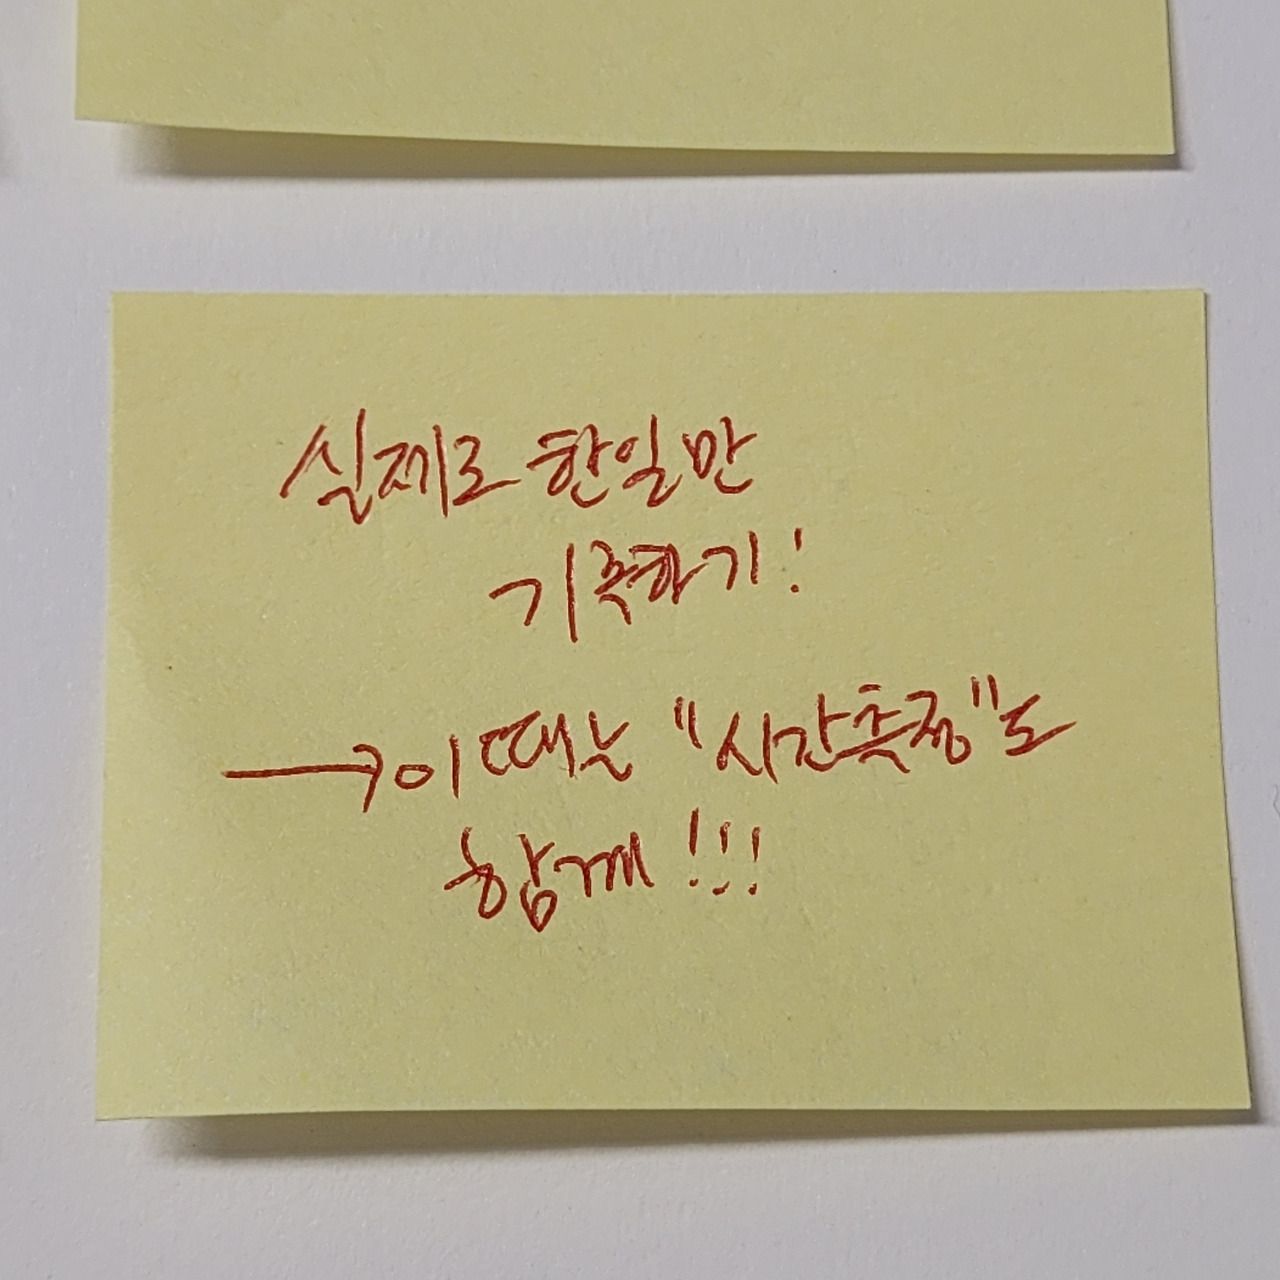 실제로 한일만
기록하기!
→ 이때는 "시간측정"도
함께!!!